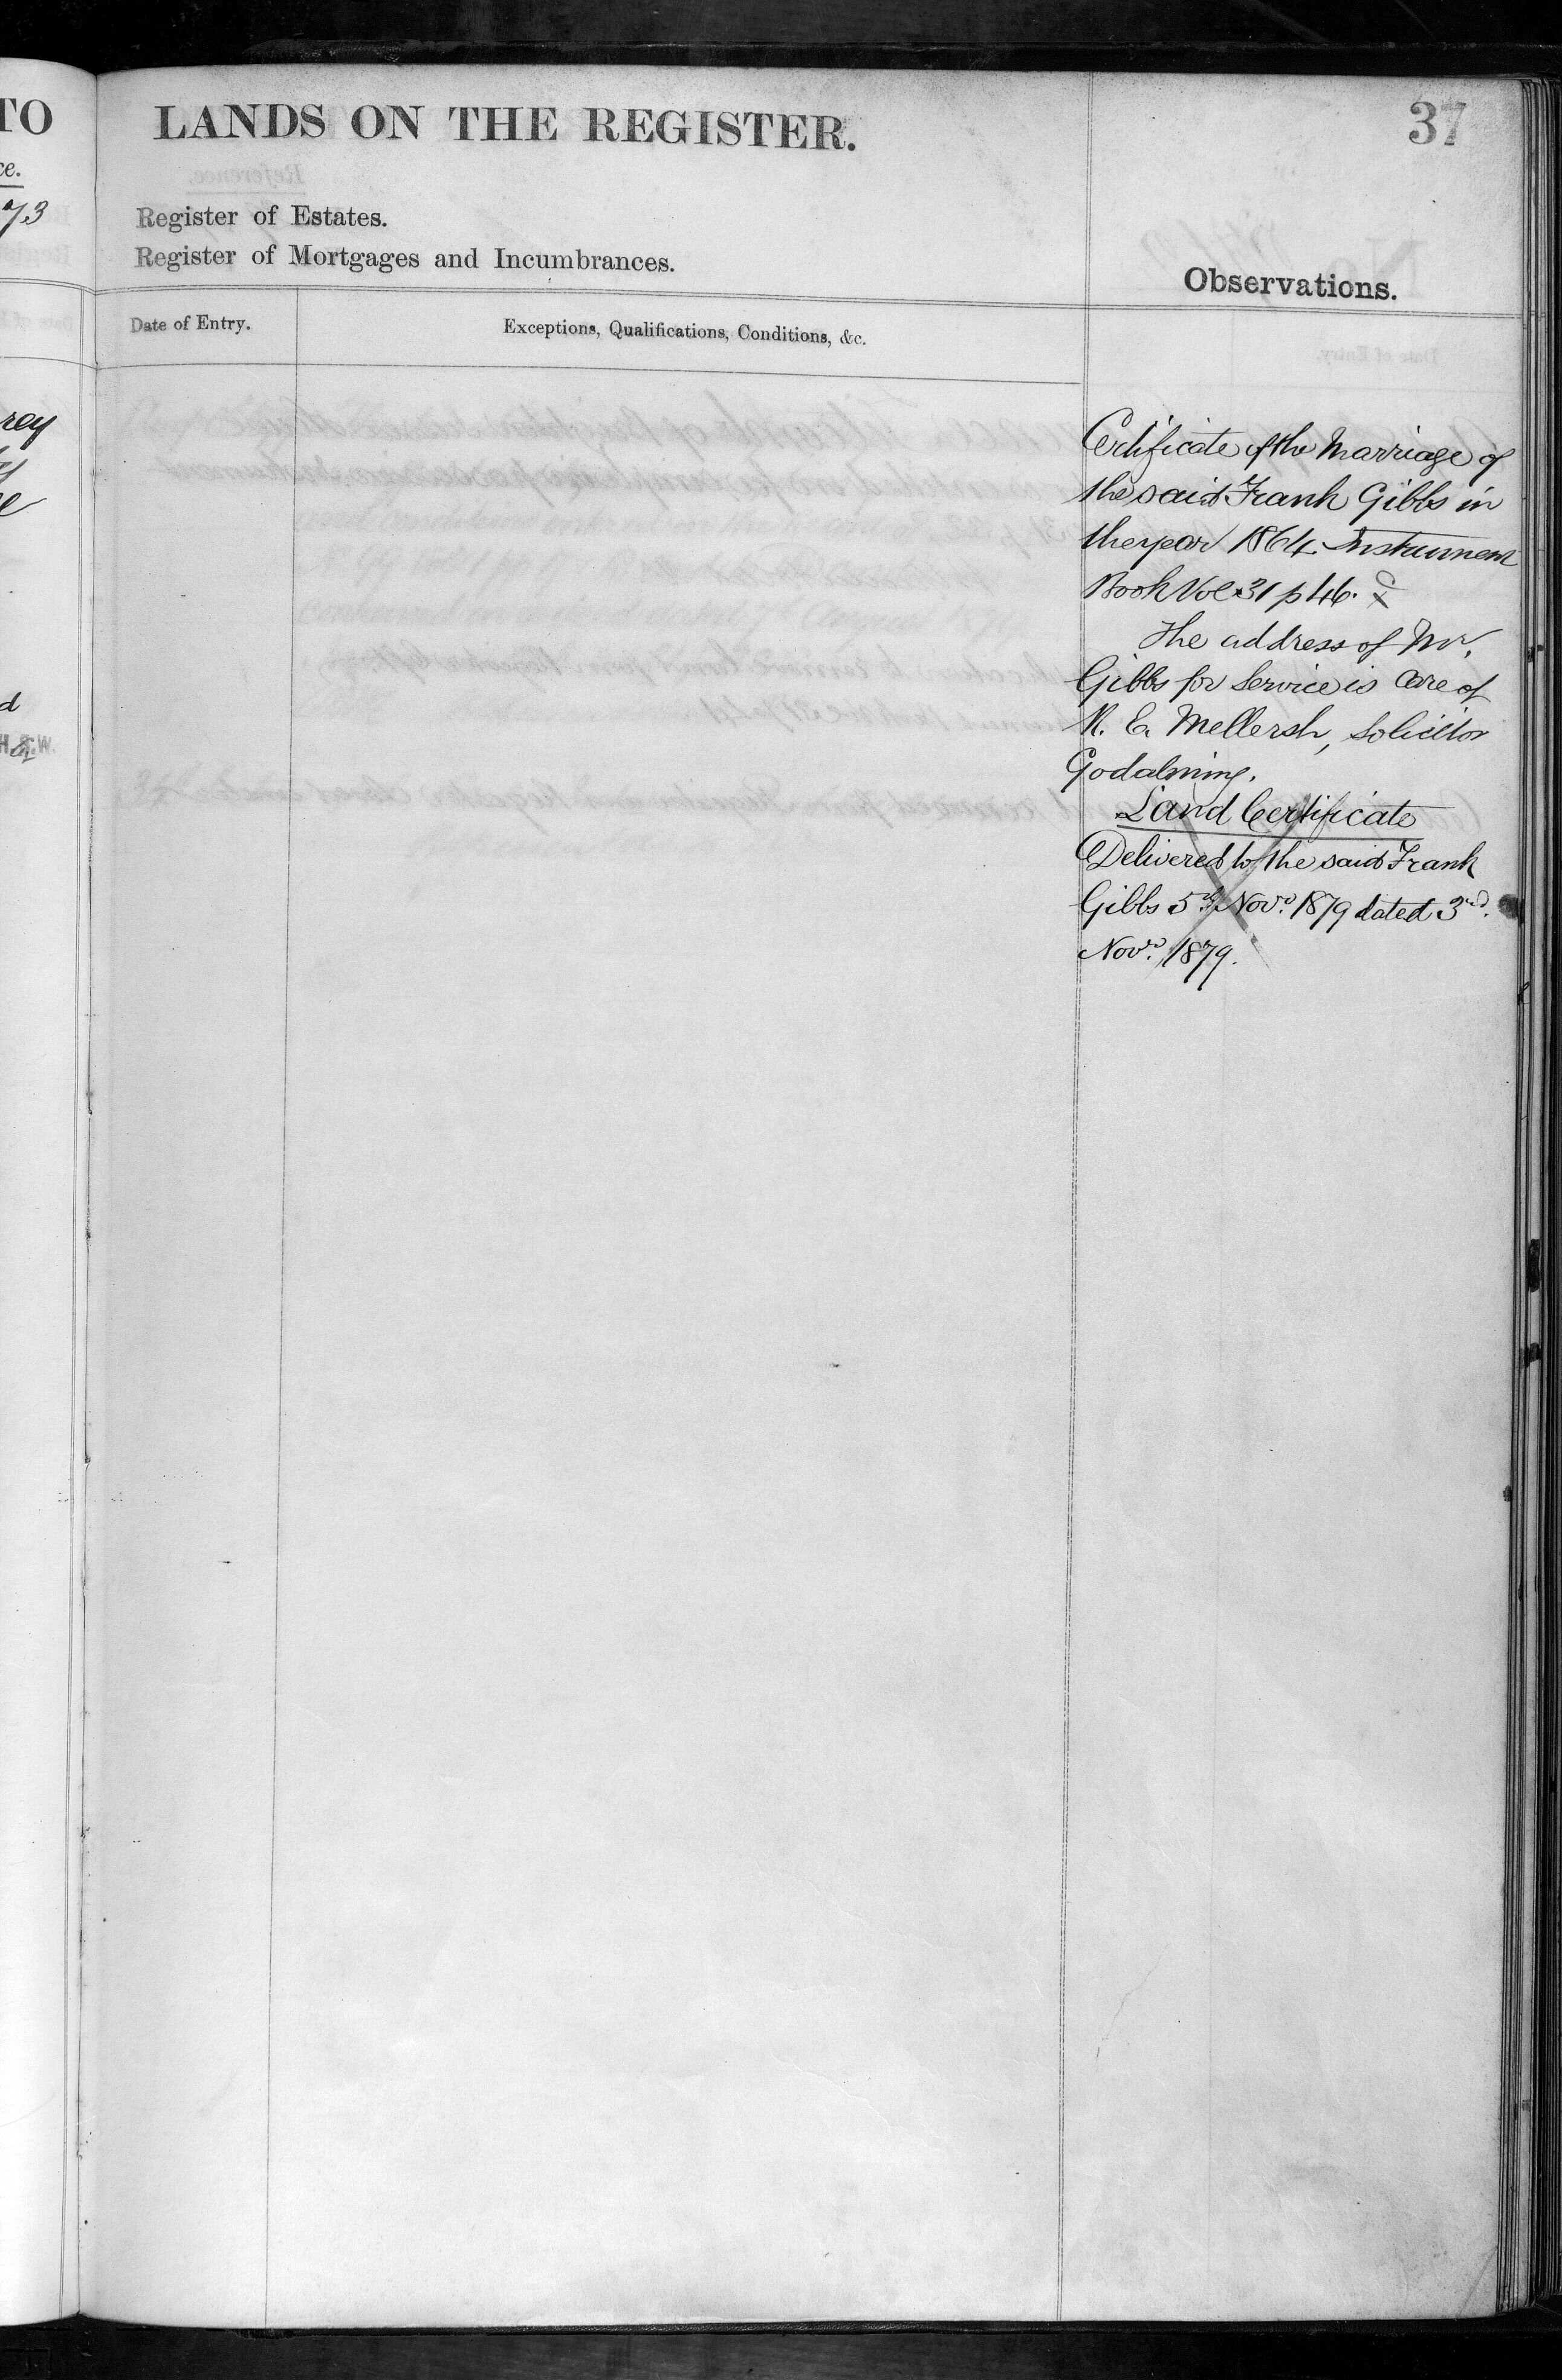 TO
LANDS ON THE REGISTER.
37
ce.
73
Register of Estates.
Register of Mortgages and Incumbrances.
Observations.
Date of Entry.
Exceptions, Qualifications, Conditions, &c.
rey
d
Certificate of the Marriage of
the said Frank Gibbs in
the year 1864. Instrument
Book Vol 31 p 46.
The address of Mr.
Gibbs for Service is Care of
E. Mellersh, Solicitor
Godalming.
Land Certificate
Delivered to the said Frank
Gibbs 5th Novr. 1879 dated 3rd.
Novr. 1879.